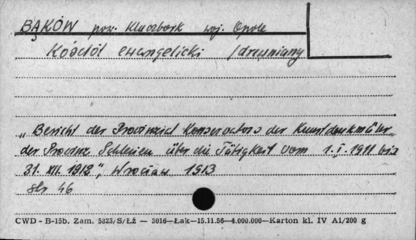 BĄKÓW pow. Kluczbork woj. Opole
Kościół ewangelicki /drewniany
„Bericht des Provinzial Konservators der Kunstdenkmäler
der Provinz Schlesien über die Tätigkeit vom 1.I.1911 bis
31.XII.1912", Wrocław 1913
str 46
CWD - B-15b. Zam. 5823/S/ŁŻ — 3016—Łak—15.11.56—4.000.000—Karton kl. IV A1/200 g